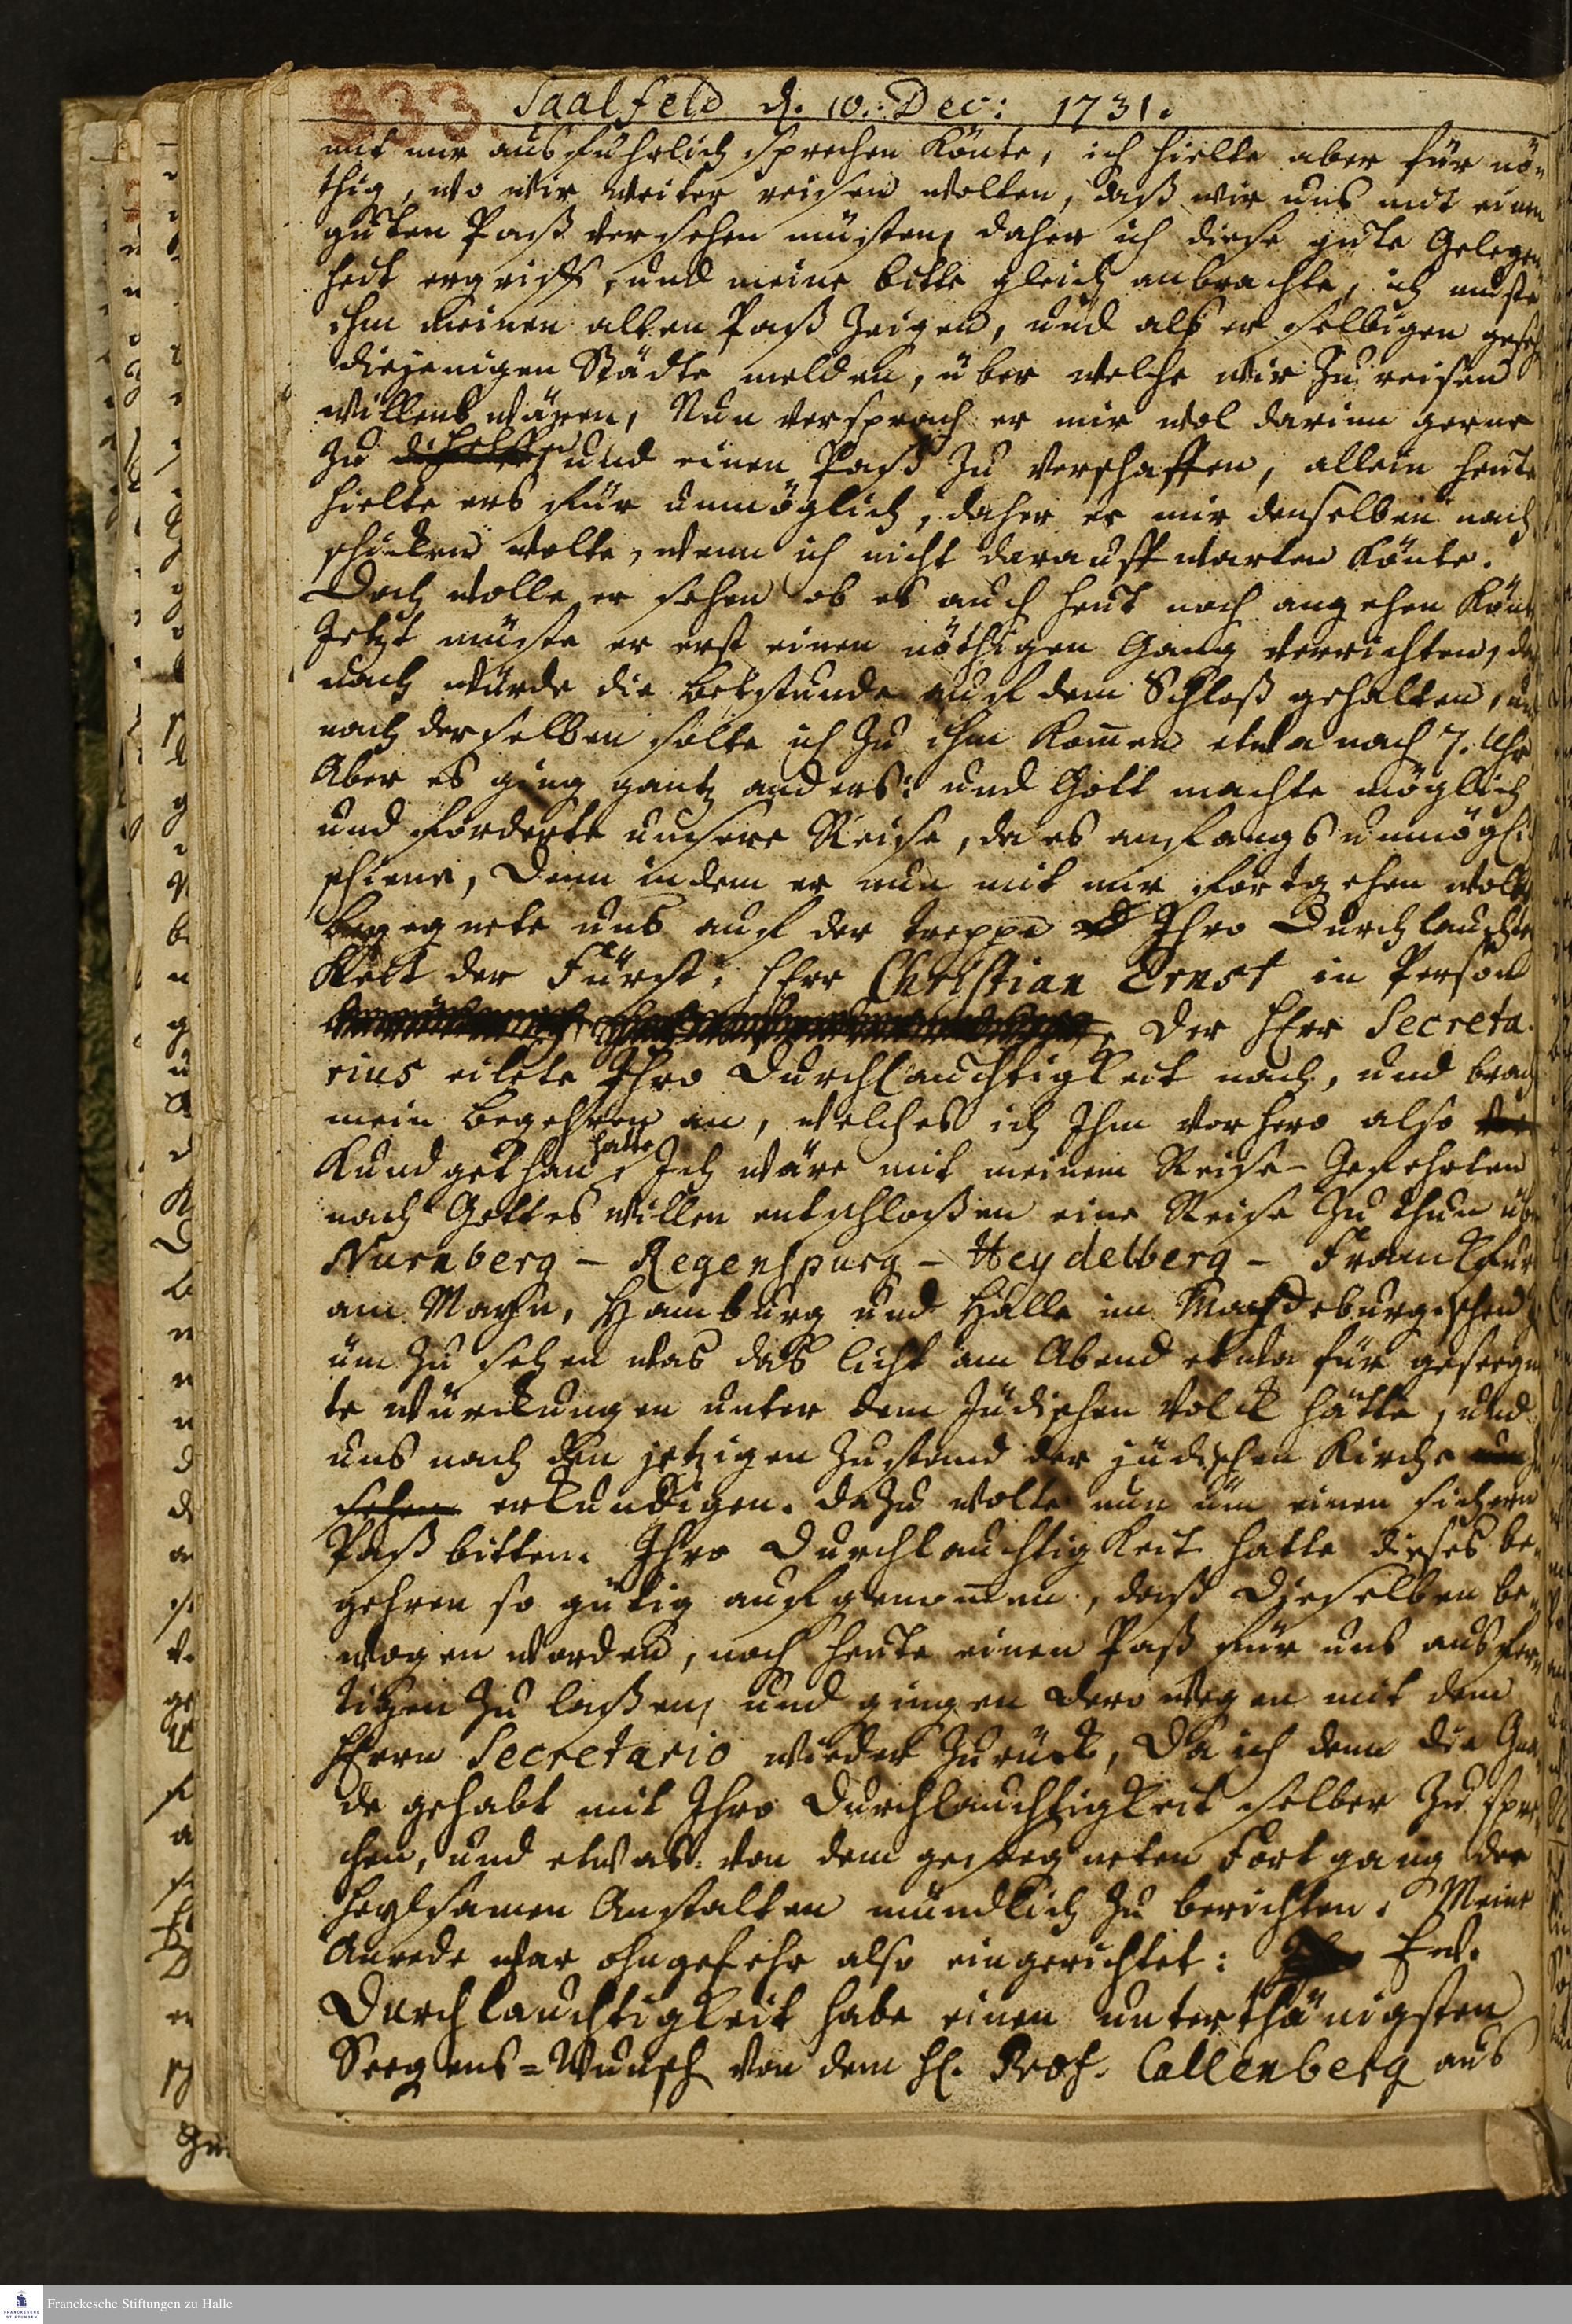 333.
Saalfeld d. 10. Dec: 1731.
mit mir ausführlich sprechen könte, ich hielte aber für nö-
thig, wo wir weiter reisen wolten, daß wir uns mit einem
guten Paß versehen müsten, daher ich diese gute Gelegen
heit ergriff, und meine bitte gleich anbrachte, ich muste
ihm meinen alten Paß zeigen, und als er selbigen geseh
diejenigen Städte melden, über welche wir zu reisen
willens wären, Nun versprach er mir wol darinn gerne
zu helffen und einen Paß zu verschaffen, allein heute
hielte ers für unmöglich, daher er mir denselben nach
schicken wolte, wenn ich nicht darauff warten könte.
Doch wolle er sehen ob es auch heut noch angehen könt
Jetzt müste er erst einen nöthigen Gang verrichten, da
nach würde die betstunde auf dem Schloß gehalten, und
nach derselben solte ich zu ihm kom̅en etwa nach 7. Uhr
Aber es ging gantz anders: und Gott machte möglich
und forderte unsere Reise, da es anfangs unmöglich
schiene, Denn indem er nun mit mir fortgehen wolte
begegnete uns auf der treppe Ihro Durchlauchtig
keit der Fürst, Herr Christian Ernst in Person
Der Herr Secreta-
rius eilete Ihro Durchlauchtigkeit nach, und brach
mein begehren an, welches ich Ihm vorhero also
kund gethan hatte, Ich wäre mit meinem Reise-Gefehrten
nach Gottes willen entschloßen eine Reise zu thun über
Nurnberg - Regenspurg - Heydelberg - Franckfur
am Mayn, Hamburg und Halle im Magdeburgischen
üm zu sehen was das licht am Abend etwa für geseegn
te würckungen unter dem Jüdischen volck hätte, und
uns nach den jetzigen Zustand der jüdischen Kirche
sehen erkundigen. dazu wolte nun üm einen sichern
Paß bitten. Ihro Durchlauchtigkeit hatte dieses be-
gehren so gütig aufgenom̅en, daß Dieselben be-
wogen worden, noch heute einen Paß für uns ausfer-
tigen zu laßen, und gingen derowegen mit dem
Herrn Secretario wieder zurück, Da ich denn die Gna-
de gehabt mit Ihro Durchlauchtigkeit selber zu spre-
chen, und etwas von dem geseegneten Fortgang der
heylsamen Anstalten mündlich zu berichten. Meine
Anrede war ohngefehr also eingerichtet: Ew.
Durchlauchtigkeit habe einen unterthänigsten
Seegens-Wunsch von dem H. Prof. Callenberg aus
Franckesche Stiftungen zu Halle